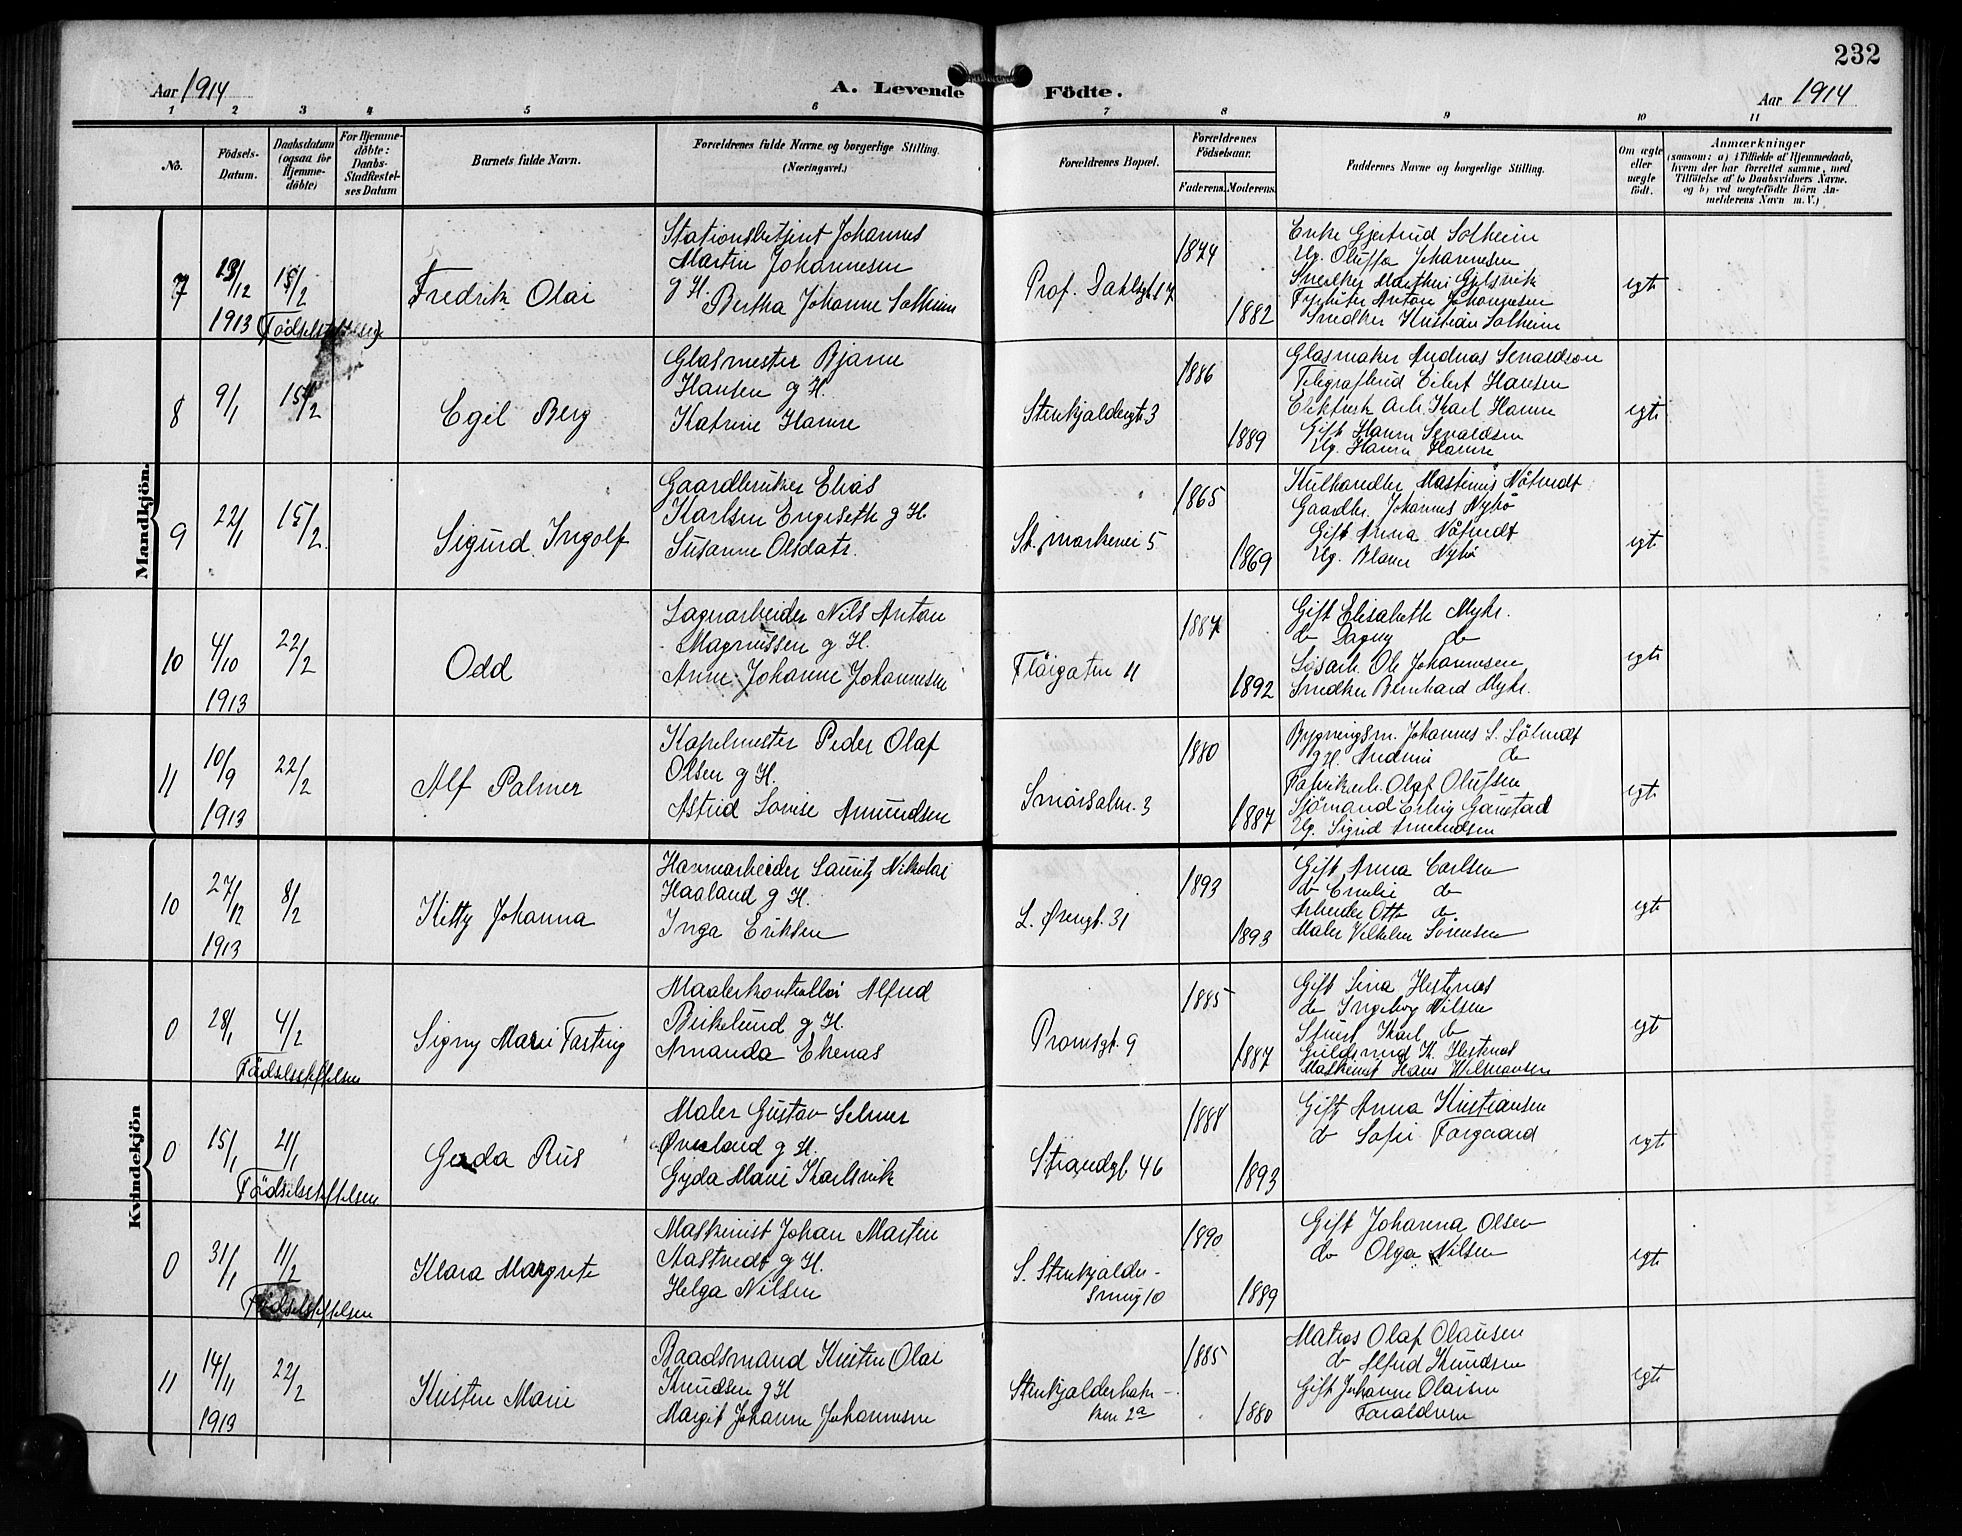 232
Aar 1914
A. Levende Födte.
Aar 1914
1 2 3 4 5 6 7 8 9 10 11
No.
Födsels-Datum.
Daabsdatum (ogsaa for Hjemme-döbte)
For Hjemme-döbte: Daabs-Stadfæstel-ses Datum
Barnets fulde Navn.
Forældrenes fulde Navne og borgerlige Stilling.
(Næringsvei.)
Forældrenes Bopæl.
Forældrenes Födselsaar.
Faderens. Moderens.
Faddernes Navne og borgerlige Stilling.
Om ægte eller uægte födt.
Anmærkninger
(saasom: a) i Tilfælde af Hjemmedaab,
hvem der har forrettet samme, med
Tilföielse af to Daabsvidners Navne.
og b) ved uægtefödte Börn An-
melderens Navn m. V.)
Mandkjön.
7 13/12 1913 15/2
(Födselsstiftelsen)
Fredrik Olai
Stationsbetjent Johannes
Martin Johannesen
g H.
Bertha Johanne Solheim
Prof. Dahlsgt 17
1874 1882
Enke Gjertrud Solheim
Ug. Oluffa Johannesen
Snedker Marthin Gjelsvik
Typhuter Anton Johannesen
Snedker Kristian Solheim
egte
8 9/1 15/2
Egil Berg
Glasmester Bjarne
Hansen g H.
Katrine Hamre
Stenkjeldergt 3
1886 1889
Glasmaker Andreas Sevaldson
Telegrafbud Eilert Hansen
Elektrisk Arb. Karl Hamre
Gift Hanna Sevaldsen
Ug. Hanna Hamre
egte
9 22/1 15/2
Sigurd Ingolf
Gaardbruker Elias
Karlsen Engeseth g H.
Susanne Olsdatr.
St. markevei 5
1865 1869
Kulhandler Mastinus Nåtvedt
Gaardbr. Johannes Nyhø
Gift Anna Nåtvedt
Ug. Nyhø
egte
10 4/10 1913 22/2
Odd
Lagerarbeider Nils Anton
Magnussen g H.
Anna Johanne Johannesen
Fløigaten 11
1887 1892
Gift Elisabeth Myhr.
do Dagny do
Løsarb. Ole Johannesen
Snedker Bernhard Myhr.
egte
11 10/9 1913 22/2
Alf Palmer
Kapelmester Peder Olaf
Olsen g H.
Astrid Lovise Amundsen
Smörsalm. 3
1880 1887
Bygningsm. Johannes S. Sölvedt
g H. Andrine do
Fabrikarb. Olaf Olufsen
Sjömand Erling Ganstad
Ug. Sigrid Amundsen
egte
Kvindekjön
10 27/12 1913 8/2
Kitty Johanna
Havnearbeider Lauritz Nikolai
Haaland g H.
Inga Eriksen
L. Øvregt. 31
1893 1893
Gift Anna Carlsen
do Emelie do
Arbeider Otto do
Maler Vilhelm Sörensen
egte
0 28/1 4/2
Födselsstiftelsen
Signy Marie Fasting
Maalerkontrollör Alfred
Birkelund g H.
Amanda Ekenæs
Promsgt. 9
1885 1887
Gift Sina Hestenes
do Ingeborg Nilsen
Karl do
Guldsmed K. Hestenes
Maskinist Hans Hermansen
egte
0 15/1 21/1
Födselsstiftelsen
Gerda Riis
Maler Gustav Selmer
Øvreland g H.
Gyda Marie Karlsvik
Strandgt. 46
1888 1893
Gift Anna Kristiansen
do Sofie Forgaard
egte
0 31/1 11/2
Födselsstiftelsen
Klara Margrete
Maskinist Johan Martin
Aastvedt g H.
Helga Nilsen
S. Stenkjelder-
smug 10
1890 1889
Gift Johanna Olsen
do Olga Nilsen
egte
11 14/11 1913 22/2
Kirsten Marie
Baadsmand Kristen Olai
Knudsen g H
Margit Johanne Johannesen
Stenkjelderbak-
ken 2a
1885 1880
Matros Olaf Olausen
do Alfred Knudsen
Gift Johanne Olaisen
Forældrene
egte